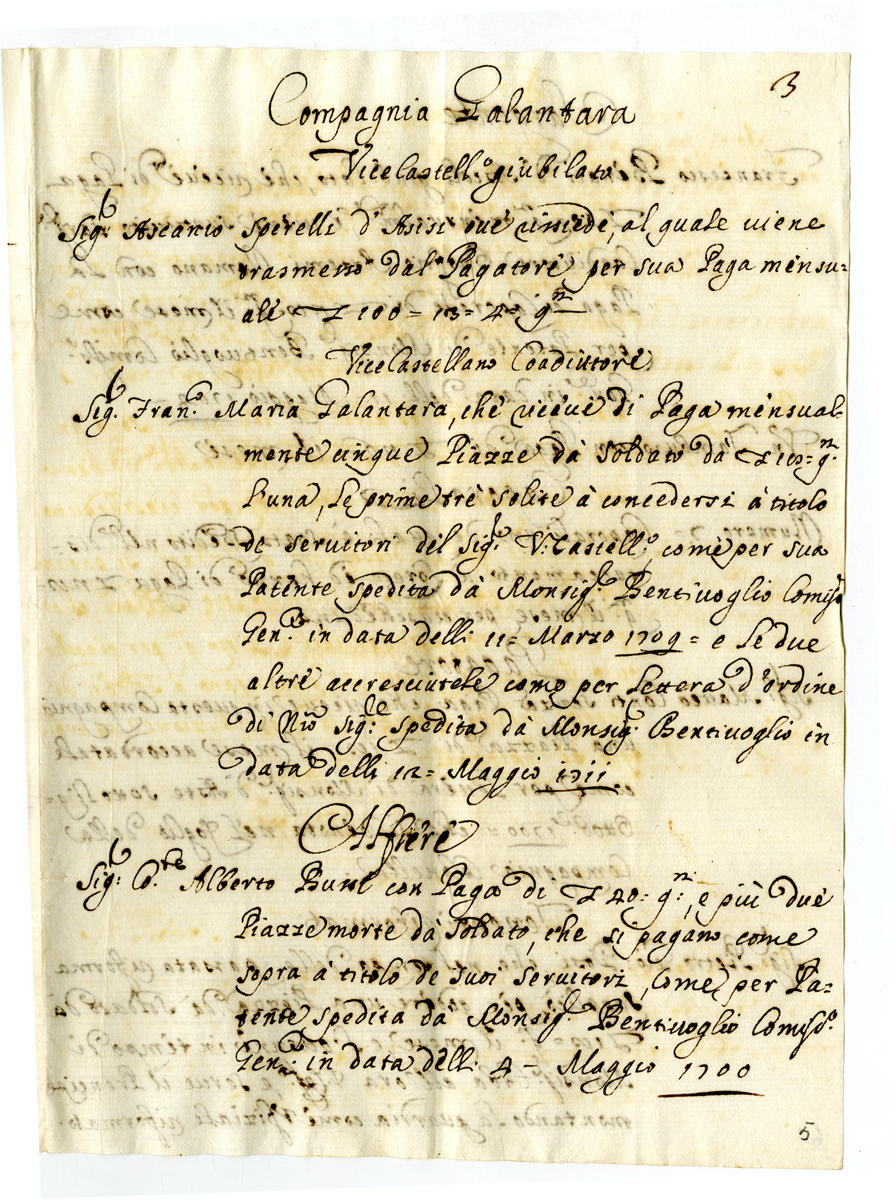 3
Compagnia Galantara
Vice Castell.º giubilato
Sig.r Ascanio Sperelli d'Asisi ove risiede, al quale viene
trasmesso dal Pagatore per sua Paga mensu=
ale 100 = 13 = 4 =
Vice Castellano Coadiutore
Sig.r Fran.º Maria Galantara, che riceve di Paga mensual=
mente cinque Piazze da Soldato da
l'una, le prime tre solite à concedersi à titolo
de servitori del Sig.r V. Castell.º, come per sua
Patente spedita da Monsig.r Bentivoglio Comiss.
Gen.le in data delli 11= Marzo 1709= e le due
altre accresciutele come per lettera d'ordine
di Nro Sig.re spedita da Monsig.r Bentivoglio in
data delli 12= Maggio 1711
Alfiere
Sig.r Co.te Alberto con Paga di 40= , e più due
Piazze morte da Soldato, che si pagano come
sopra à titolo de suoi servitori, come per Pa=
tente spedita da Monsig.r Bentivoglio Comiss.º
Gen.le in data delli 4 = Maggio 1700
5